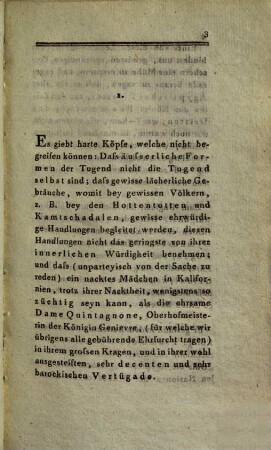 3
1.
Es giebt harte Köpfe, welche nicht be-
greifen können: Daſs äuſserliche For-
men der Tugend nicht die Tugend
selbst sind; daſs gewisse lächerliche Ge-
bräuche, womit bey gewissen Völkern,
z. B. bey den Hottentotten und
Kamtschadalen, gewisse ehrwürdi-
ge Handlungen begleitet werden, diesen
Handlungen nicht das geringste von ihrer
innerlichen Würdigkeit benehmen;
und daſs (unparteyisch von der Sache zu
reden) ein nacktes Mädchen in Kalifor-
nien, trotz ihrer Nacktheit, wenigstens so
züchtig seyn kann, als die ehrsame
Dame Quintagnone, Oberhofmeiste-
rin der Königin Genievre, (für welche wir
übrigens alle gebührende Ehrfurcht tragen)
in ihrem groſsen Kragen, und in ihrer wohl
ausgesteiften, sehr decenten und sehr
barockischen Vertügade.